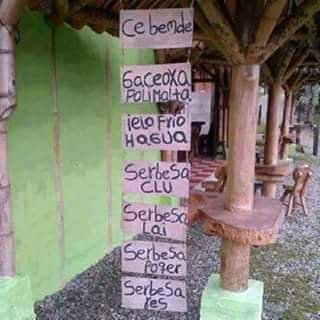 Cebemde
GaceOXa
POliMalta
ielo FriO
HaGUa
SerbeSa
CLU
SerbeSa
Lai
SerbeSa
Poqer
SerbeSa
res